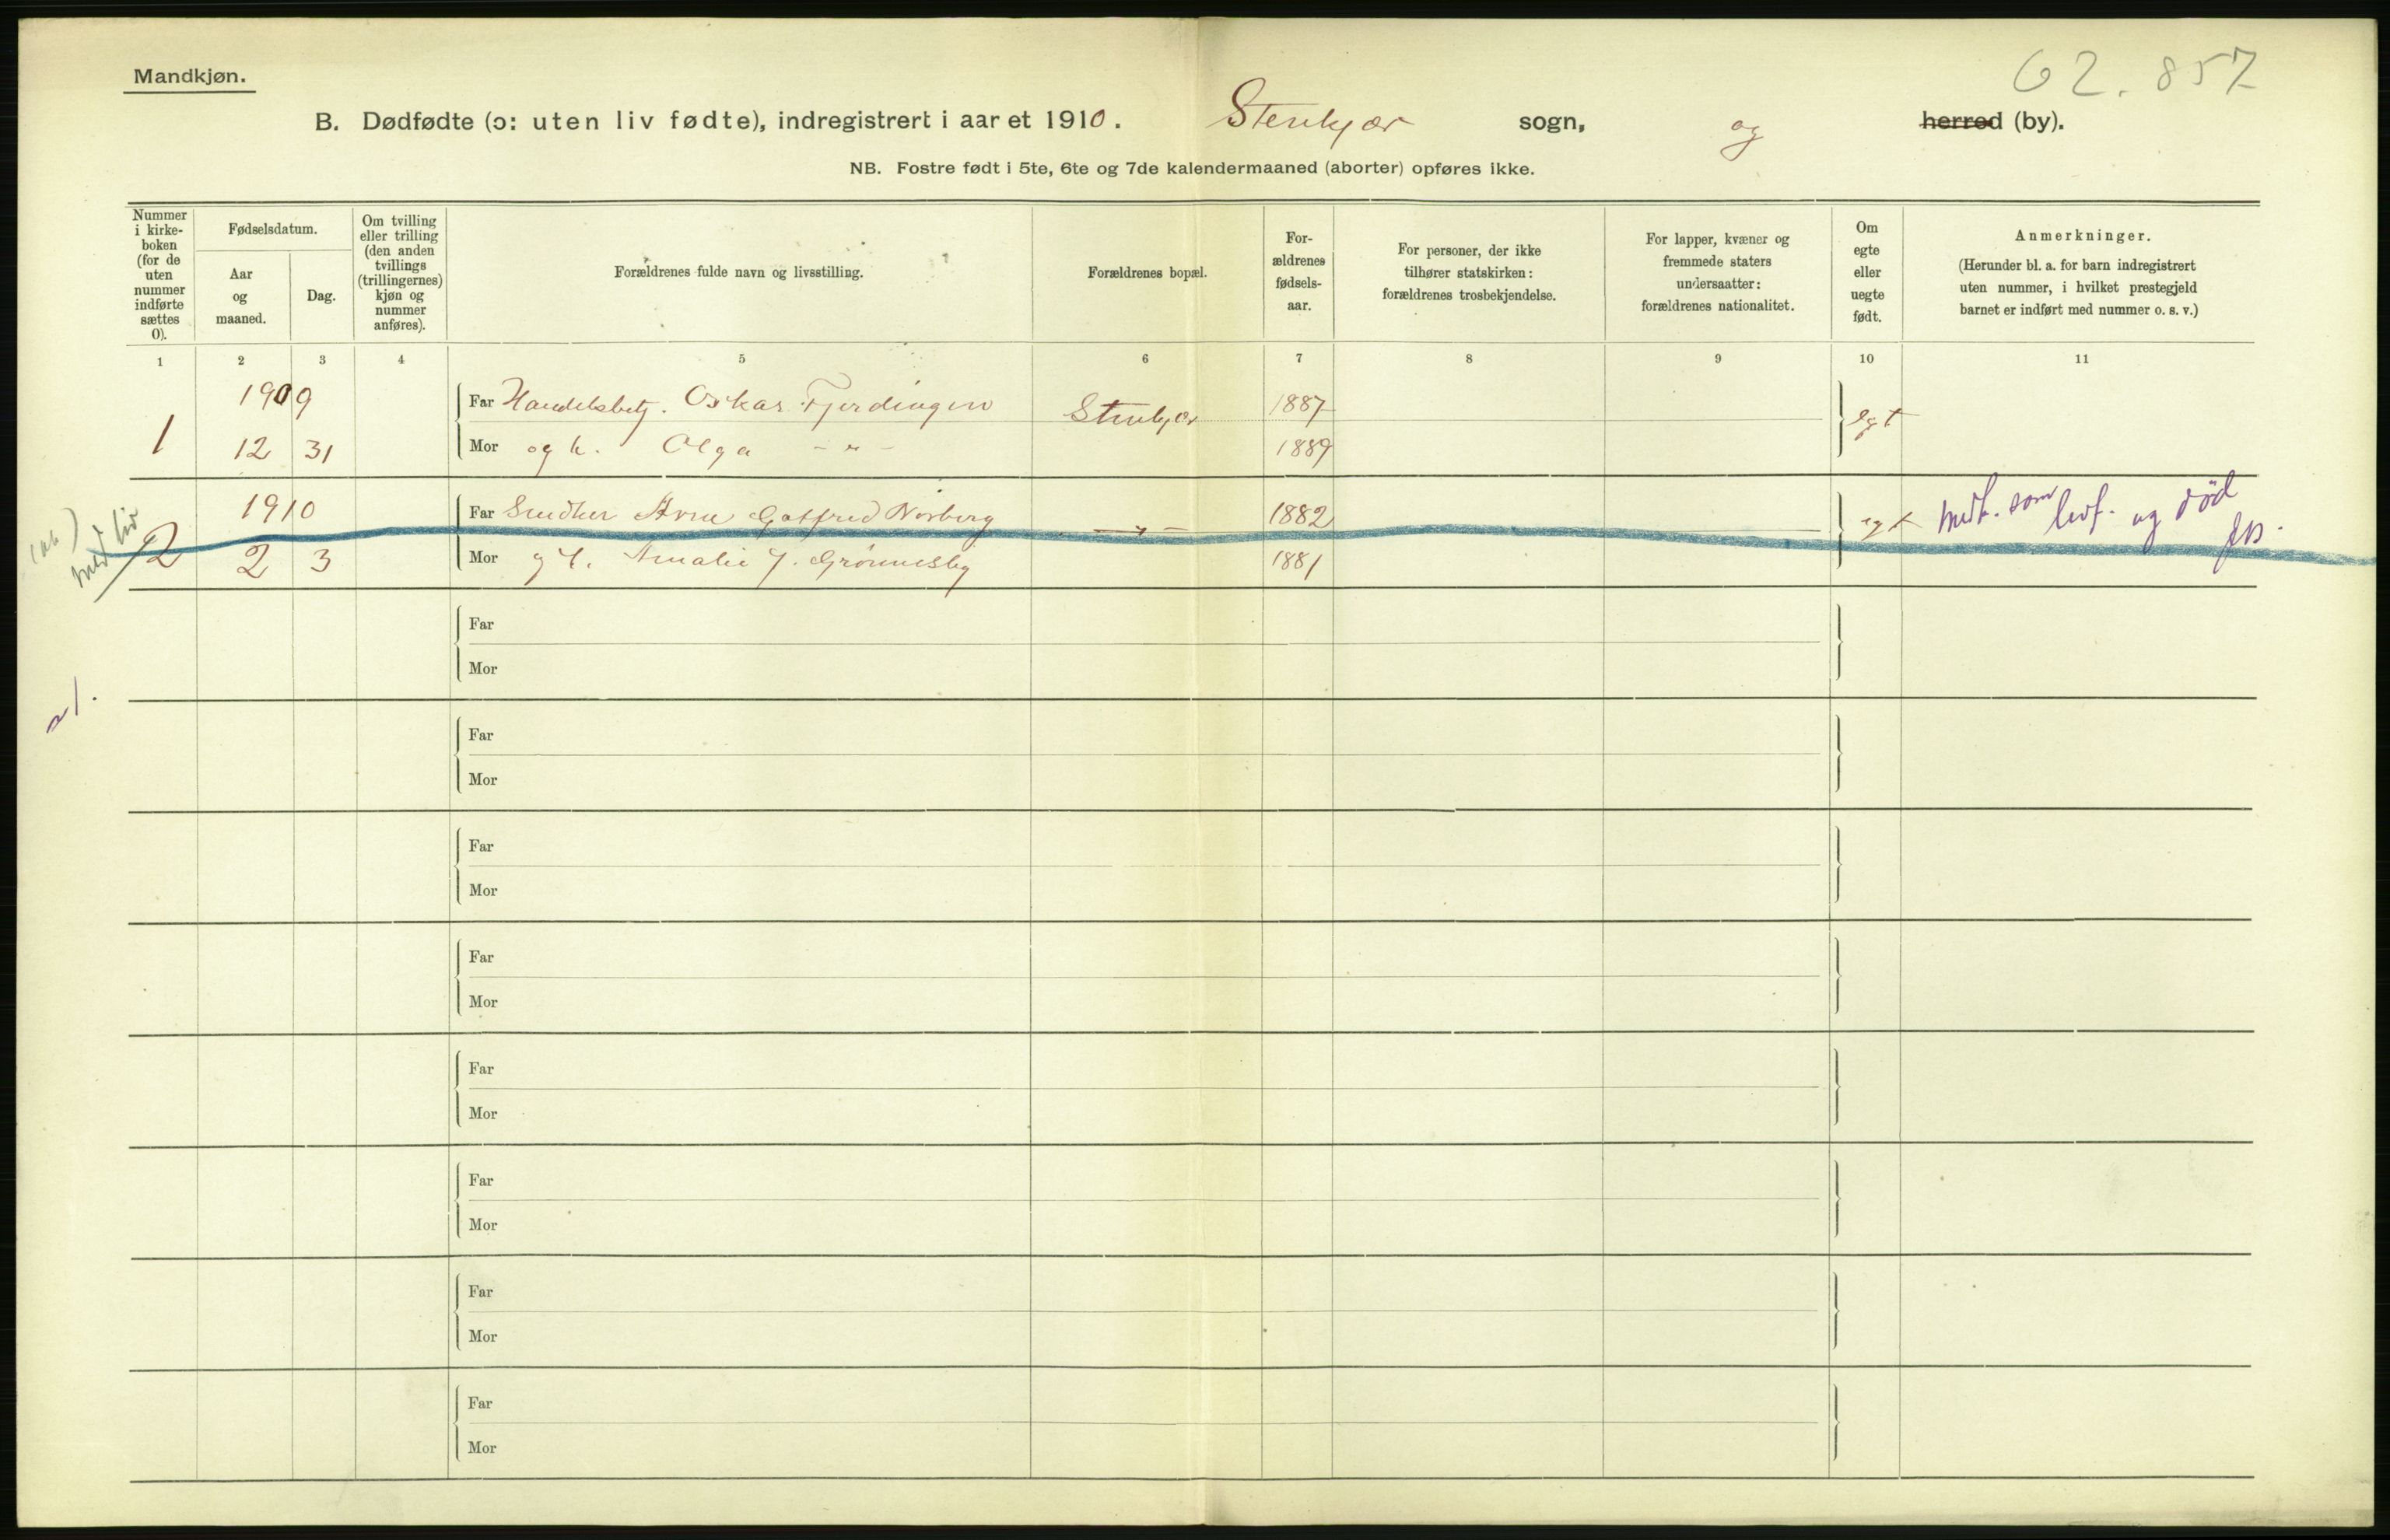 62.857
Mandkjøn.
B. Dødfødte (ɔ: uten liv fødte), indregistrert i aaret 1910. Stenkjær sogn, og herred (by).
NB. Fostre født i 5te, 6te og 7de kalendermaaned (aborter) opføres ikke.
Nummer i kirkeboken (for de uten nummer indførte sættes 0).
Fødselsdatum.
Aar og maaned.
Dag.
Om tvilling eller trilling (den anden tvillings (trillingernes) kjøn og nummer anføres).
Forældrenes fulde navn og livsstilling.
Forældrenes bopæl.
Forældrenes fødselsaar.
For personer, der ikke tilhører statskirken: forældrenes trosbekjendelse.
For lapper, kvæner og fremmede staters undersaatter: forældrenes nationalitet.
Om egte eller uegte født.
Anmerkninger.
(Herunder bl. a. for barn indregistrert uten nummer, i hvilket prestegjeld barnet er indført med nummer o. s. v.)
1 2 3 4 5 6 7 8 9 10 11
1909 Far Handelsbetj. Oskar Fjerdingen Stenkjær 1887 egt
1 12 31 Mor og h. Olga - " - 1889
1910 Far Smdker Arne Gotfred Norberg - " - 1882 egt medt. som levf. og død
med liv
2 2 3 Mor og h. Amalie J. Grönnesby 1881
Far
Mor
Far
Mor
Far
Mor
Far
Mor
Far
Mor
Far
Mor
Far
Mor
Far
Mor